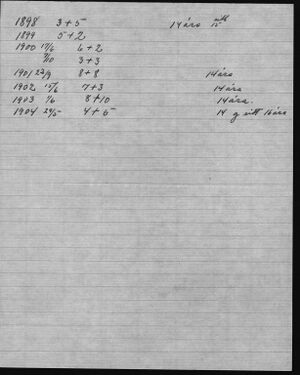 1898 3+5 14 års
1899 5+2
1900 17/6 6+2
7/10 3+3
1901 22/9 8+8 14 års
1902 15/6 7+3 14 års
1903 7/6 8+10 14 års.
1904 29/5 4+5 14 g ett 16 års